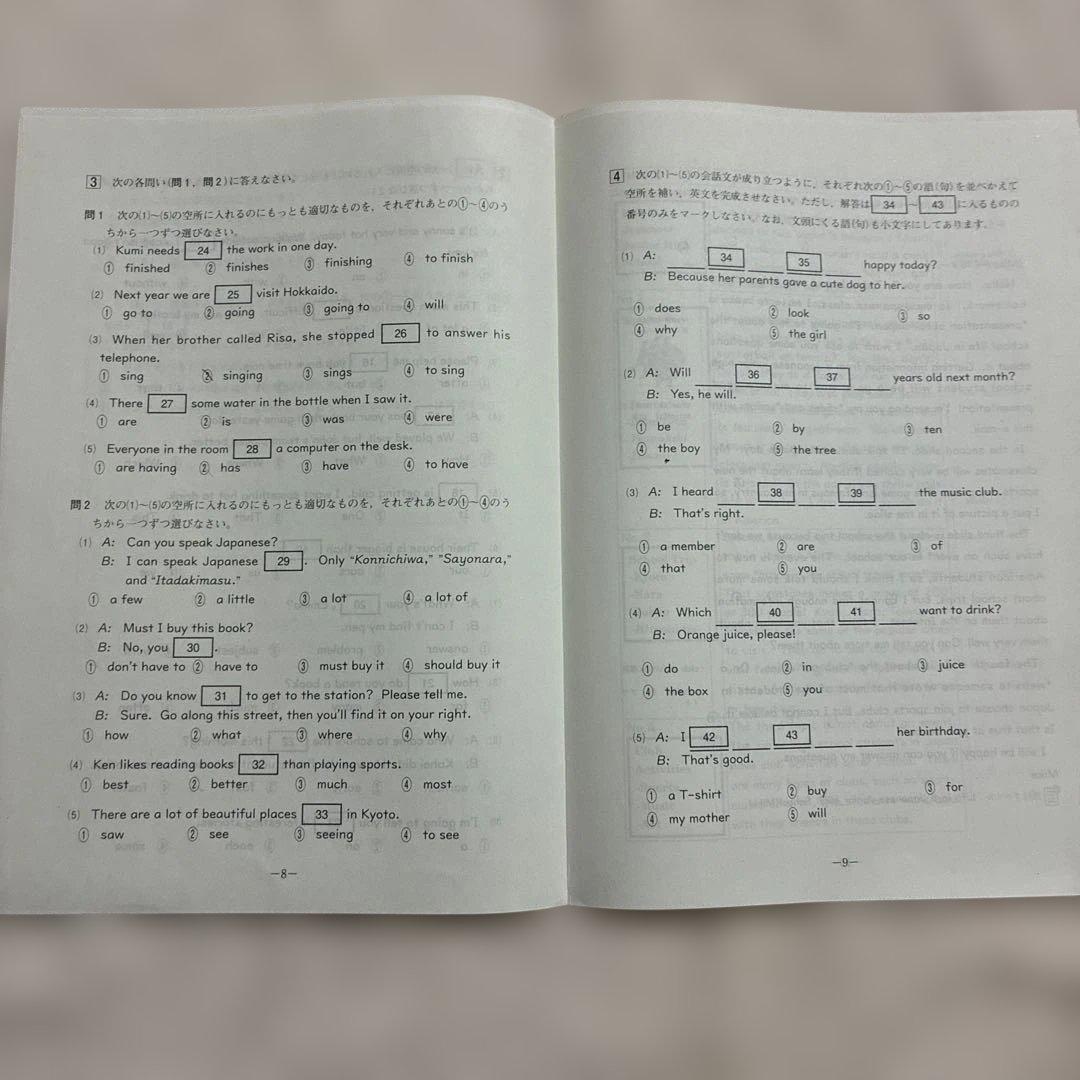 3 次の各問い(問1，問2)に答えなさい。
問1 次の(1)～(5)の空所に入れるのにもっとも適切なものを，それぞれあとの①～④のう
ちから一つずつ選びなさい。
(1) Kumi needs 24 the work in one day.
① finished ② finishes ③ finishing ④ to finish
(2) Next year we are 25 visit Hokkaido.
① go to ② going ③ going to ④ will
(3) When her brother called Risa, she stopped 26 to answer his
telephone.
① sing ② singing ③ sings ④ to sing
(4) There 27 some water in the bottle when I saw it.
① are ② is ③ was ④ were
(5) Everyone in the room 28 a computer on the desk.
① are having ② has ③ have ④ to have
問2 次の(1)～(5)の空所に入れるのにもっとも適切なものを，それぞれあとの①～④のう
ちから一つずつ選びなさい。
(1) A: Can you speak Japanese?
B: I can speak Japanese 29. Only "Konnichiwa," "Sayonara,"
and "Itadakimasu."
① a few ② a little ③ a lot ④ a lot of
(2) A: Must I buy this book?
B: No, you 30.
① don't have to ② have to ③ must buy it ④ should buy it
(3) A: Do you know 31 to get to the station? Please tell me.
B: Sure. Go along this street, then you'll find it on your right.
① how ② what ③ where ④ why
(4) Ken likes reading books 32 than playing sports.
① best ② better ③ much ④ most
(5) There are a lot of beautiful places 33 in Kyoto.
① saw ② see ③ seeing ④ to see
—8—
4 次の(1)～(5)の会話文が成り立つように，それぞれ次の①～⑤の語(句)を並べかえて
空所を補い，英文を完成させなさい。ただし，解答は 34 ～ 43 に入るものの
番号のみをマークしなさい。なお，文頭にくる語(句)も小文字にしてあります。
(1) A: ____ 34 ____ 35 ____ happy today?
B: Because her parents gave a cute dog to her.
① does ② look ③ so
④ why ⑤ the girl
(2) A: Will ____ 36 ____ 37 ____ years old next month?
B: Yes, he will.
① be ② by ③ ten
④ the boy ⑤ the tree
(3) A: I heard ____ 38 ____ 39 ____ the music club.
B: That's right.
① a member ② are ③ of
④ that ⑤ you
(4) A: Which ____ 40 ____ 41 ____ want to drink?
B: Orange juice, please!
① do ② in ③ juice
④ the box ⑤ you
(5) A: I 42 ____ 43 ____ ____ her birthday.
B: That's good.
① a T-shirt ② buy ③ for
④ my mother ⑤ will
—9—